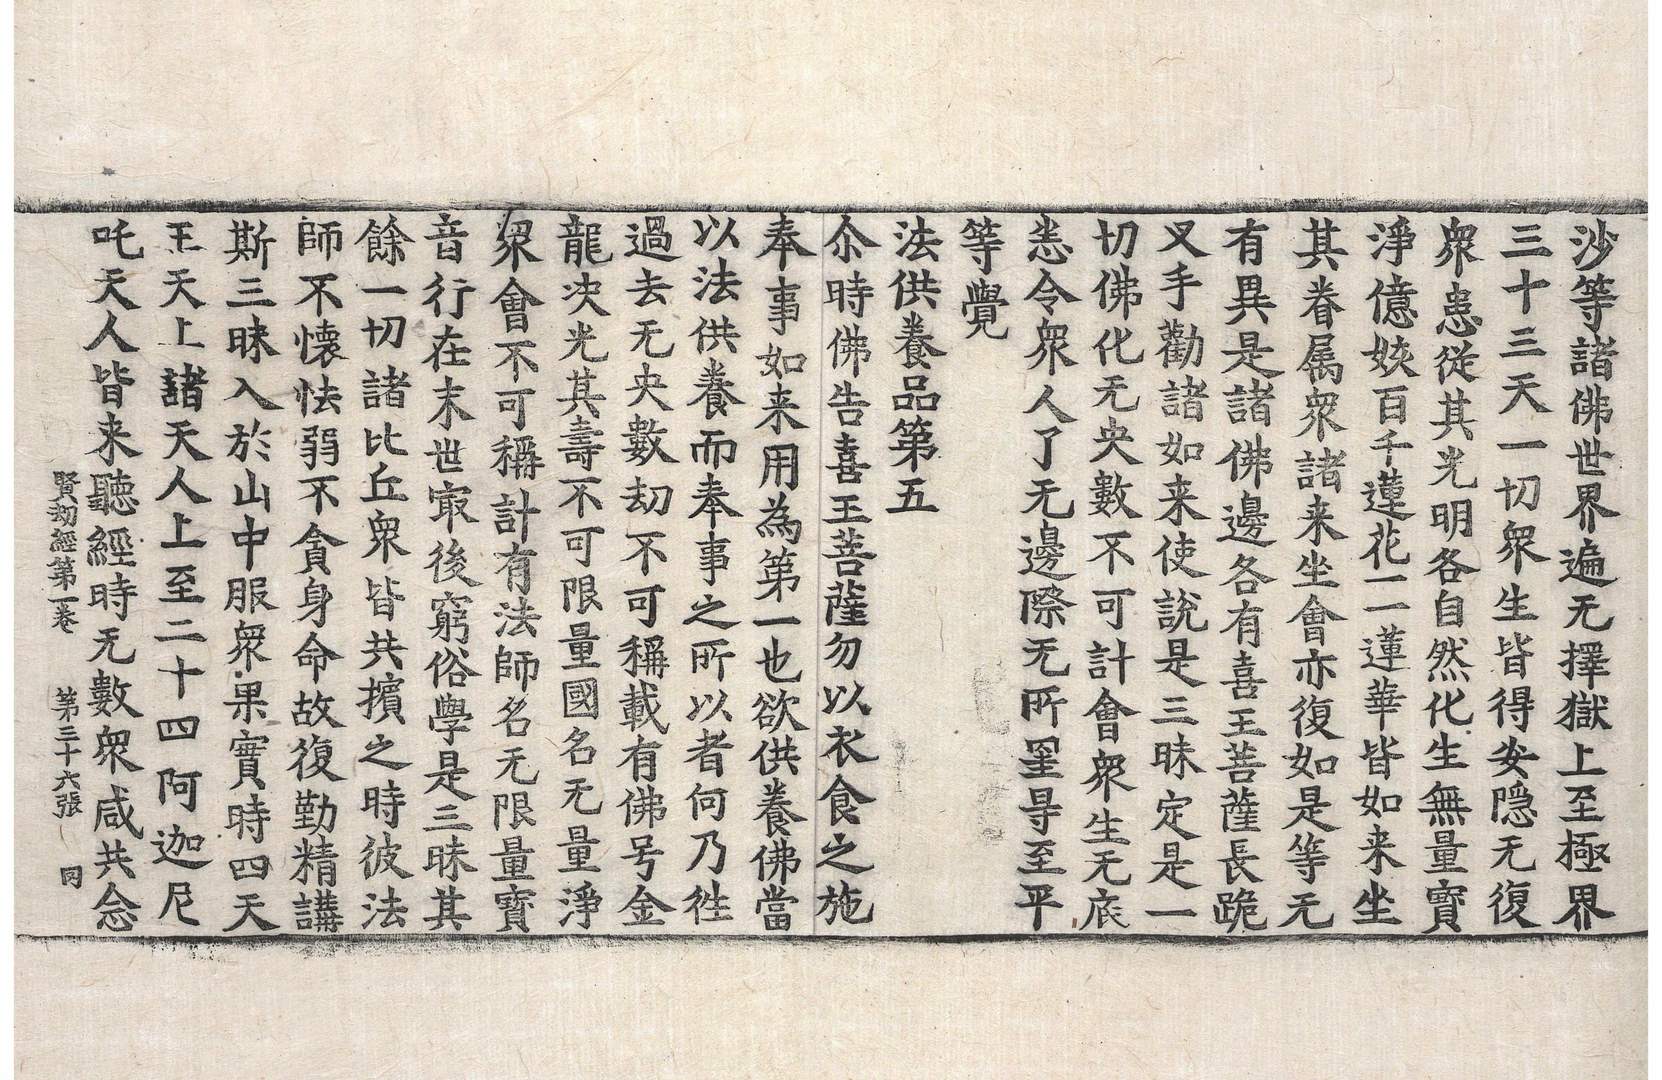 沙等諸佛世界遍无擇獄上至極界
三十三天一切衆生皆得安隱无復
衆患從其光明各自然化生無量寶
淨億姟百千蓮花一一蓮華皆如来坐
其眷属衆諸来坐會亦復如是等无
有異是諸佛邊各有喜王菩薩長跪
叉手勸諸如来使說是三昧定是一
切佛化无央數不可計會衆生无底
悉令衆人了无邊際无所罣㝵至平
等覺
法供養品第五
尒時佛告喜王菩薩勿以衣食之施
奉事如来用為第一也欲供養佛當
以法供養而奉事之所以者何乃徃
過去无央數劫不可稱載有佛号金
龍决光其壽不可限量國名无量淨
衆會不可稱計有法師名无限量寶
音行在末世寂後窮俗學是三昧其
餘一切諸比丘衆皆共擯之時彼法
師不懷怯弱不貪身命故復勤精講
斯三昧入於山中服衆果實時四天
王天上諸天人上至二十四阿迦尼
吒天人皆来聽經時无數衆咸共念
賢劫經第一卷 第三十六張 同